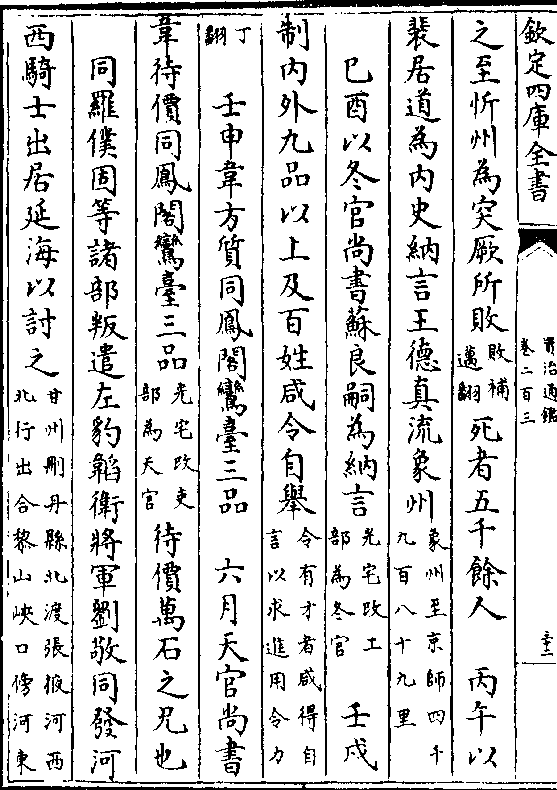 欽定四庫全書
資治通鑑
卷二百三
之至忻州為突厥所敗敗補邁翻死者五千餘人　丙午以
裴居道為内史納言王德真流象州象州至京師四千九百八十九里
己酉以冬官尚書蘇良嗣為納言光宅改工部為冬官　壬戌
制内外九品以上及百姓咸令自舉令有才者咸得自言以求進用令力
丁翻　壬申韋方質同鳳閣鸞臺三品　六月天官尚書
韋待價同鳳閣鸞臺三品光宅改吏部為天官待價萬石之兄也
同羅僕固等諸部叛遣左豹韜衛將軍劉敬同發河
西騎士出居延海以討之甘州刪丹縣北渡張掖河西北行出合黎山峽口傍河東